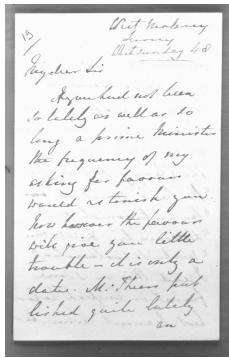 19/
West Molesey
Surrey
Whitsunday 48
My dear Sir
If you had not been
so lately as well as so
long a prime Minister
the frequency of my
asking for favours
would astonish you.
Now however the favour
will give you little
trouble – it is only a
date. M. Thiers pub
lished quite lately
an